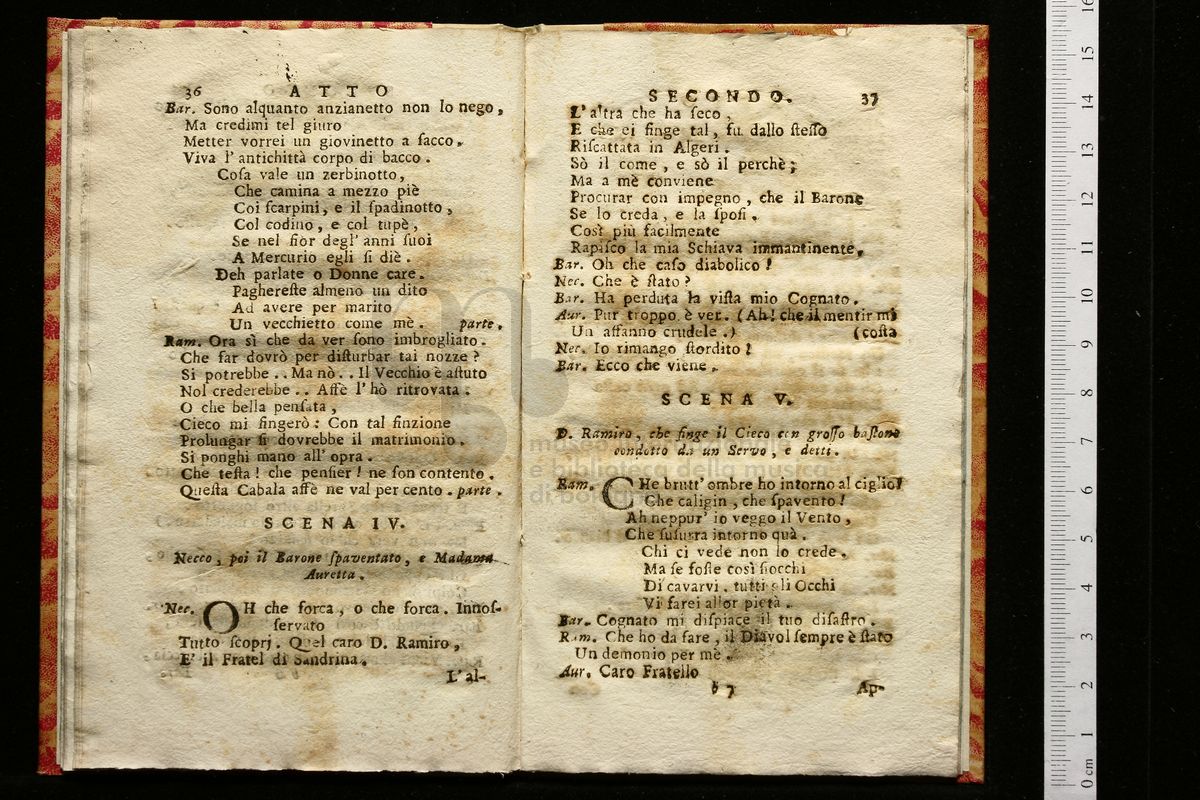 36 ATTO
Bar. Sono alquanto anzianetto non lo nego,
Ma credimi tel giuro
Metter vorrei un giovinetto a ſacco.
Viva l' antichittà corpo di bacco.
Coſa vale un zerbinotto,
Che camina a mezzo piè
Coi ſcarpini, e il ſpadinotto,
Col codino, e col tupè,
Se nel fior degl' anni ſuoi
A Mercurio egli ſi diè.
Deh parlate o Donne care.
Paghereſte almeno un dito
Ad avere per marito
Un vecchietto come mè. parte.
Ram. Ora sì che da ver ſono imbrogliato.
Che far dovrò per diſturbar tai nozze?
Si potrebbe.. Ma nò.. Il Vecchio è aſtuto
Nol crederebbe.. Affè l' hò ritrovata.
O che bella penſata,
Cieco mi fingerò: Con tal finzione
Prolungar ſi dovrebbe il matrimonio.
Si ponghi mano all' opra.
Che teſta! che penſier! ne ſon contento.
Queſta Cabala affè ne val per cento. parte.
SCENA IV.
Necco, poi il Barone ſpaventato, e Madama
Auretta.
Nec. OH che forca, o che forca. Innoſ-
ſervato
Tutto ſcoprj. Quel caro D. Ramiro,
E' il Fratel di Sandrina.
L'al-
SECONDO. 37
L' altra che ha ſeco,
E che ei finge tal, fu dallo ſteſſo
Riſcattata in Algeri.
Sò il come, e sò il perchè;
Ma a mè conviene
Procurar con impegno, che il Barone
Se lo creda, e la ſpoſi.
Così più facilmente
Rapiſco la mia Schiava immantinente.
Bar. Oh che caſo diabolico!
Nec. Che è ſtato?
Bar. Ha perduta la viſta mio Cognato.
Aur. Pur troppo è ver. (Ah! che il mentir mi
Un affanno crudele.) (coſta
Nec. Io rimango ſtordito!
Bar. Ecco che viene.
SCENA V.
D. Ramiro, che finge il Cieco con groſſo baſtone
condotto da un Servo, e detti.
Ram. CHe brutt' ombre ho intorno al ciglio!
Che caligin, che ſpavento!
Ah neppur' io veggo il Vento,
Che ſuſurra intorno quà.
Chi ci vede non lo crede.
Ma ſe foſſe così ſiocchi
Di cavarvi, tutti gli Occhi
Vi farei all'or pietà.
Bar. Cognato mi diſpiace il tuo diſaſtro.
Ram. Che ho da fare, il Diavol ſempre è ſtato
Un demonio per mè.
Aur. Caro Fratello
b 7 Ap-
museo internazionale
e biblioteca della musica
di bologna
0 cm 1 2 3 4 5 6 7 8 9 10 11 12 13 14 15 16